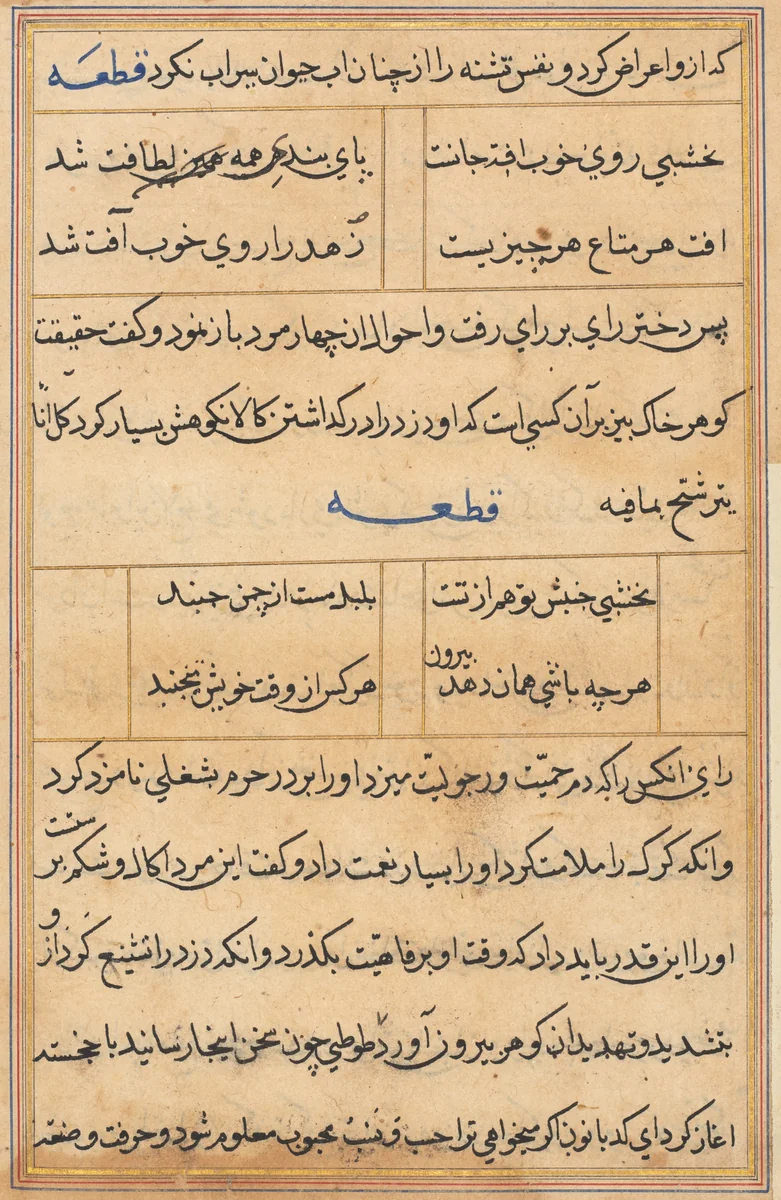 كدازو اعراض كرد و نفس تشنه را از چنان اب حيوان سيراب نكرد قطعَه
نخشبي روي خوب افت جانست
پاي بند همه لطافت شد
افت هر متاع هر چيزيست
زهد را روي خوب آفت شد
پس دختر راي بر راي رفت و احوال ان چهار مرد باز نمود و كفت حقيقت
كوهر خاك بيز بر آن كسي است كه او دزد را در كداشتن كالا نكوهش بسيار كرد كل انا
يترشّح بما فيه قطعه
نخشبي جنبش تو هم از تست
بلبل مست از چمن جنبد
هر چه باشي همان دهد بيرون
هر كس از وقت خويش بجنبد
راي انكس را كه دم حميّت و رجوليّت ميزد او را بر در حرم بشغلي نامزد كرد
و انكه كرك را ملامت كرد او را بسيار نعمت داد و كفت اين مرد اكال و شكم پرستست
او را اين قدر بايد داد كه وقت او برفاهيّت بكذرد و انكه دزد را تشنيع كرد از و
بتشديد و تهديد ان كوهر بيرون آورد طوطي چون سخن اينجا رسانيد با خجسته
اغاز كرد اي كدبانو ن اكر ميخواهي ترا حسب و نسب محبوب معلوم شود و حرفت و صنعت